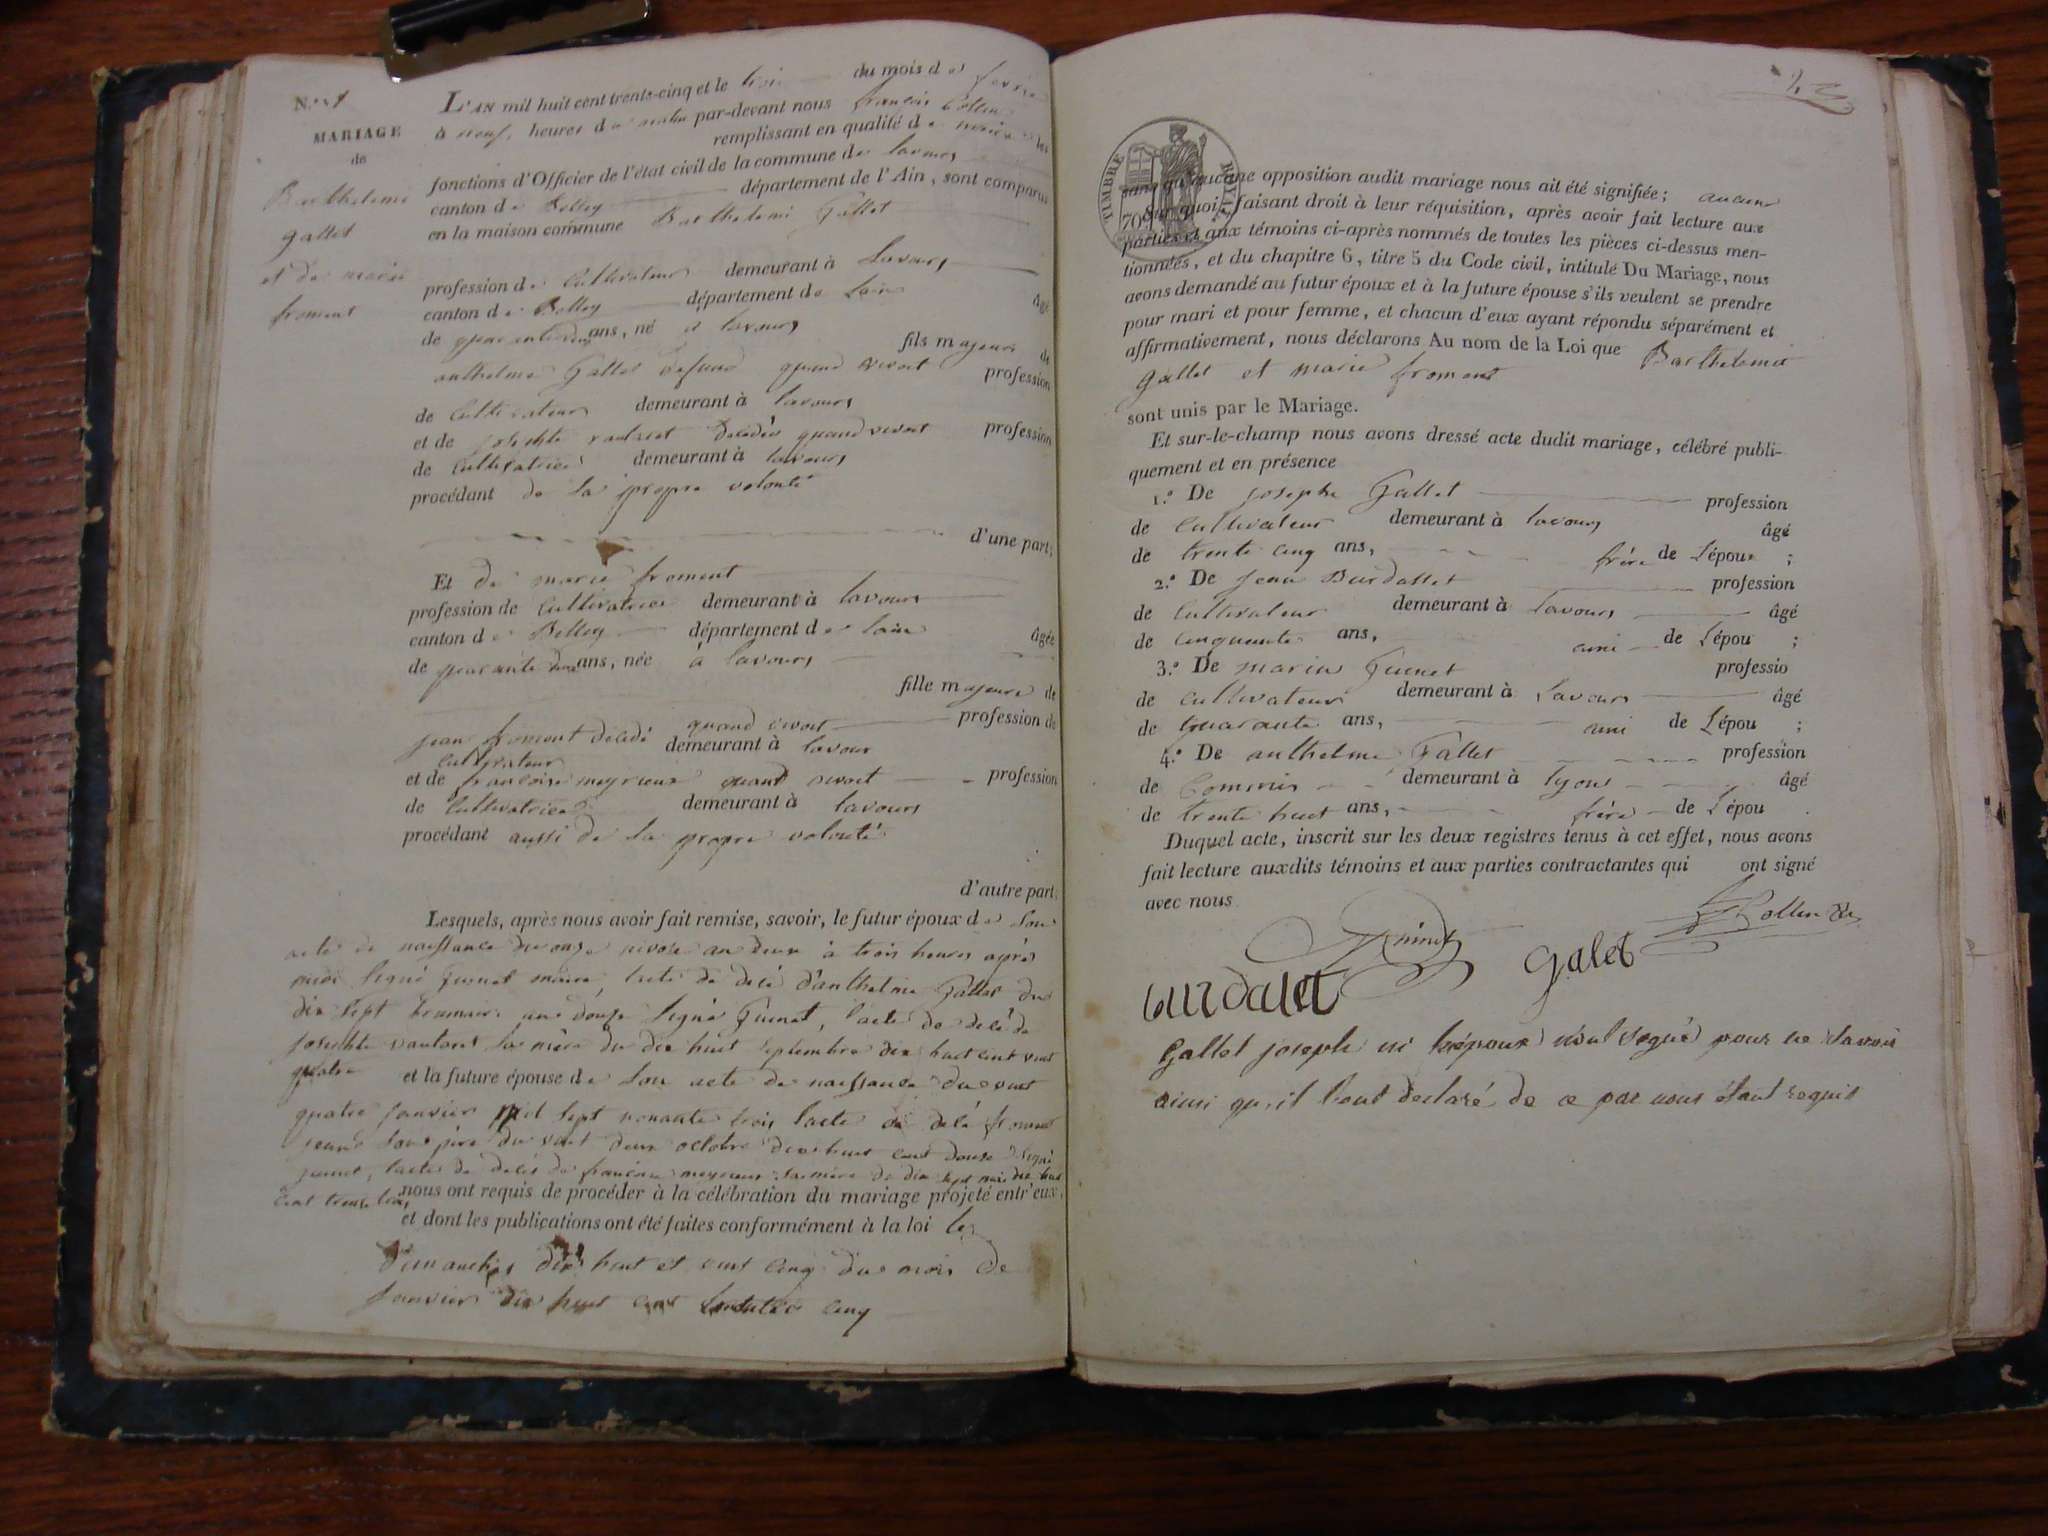 N.º 1
MARIAGE
de
Barthelemi
gallet
et de marie
froment
L'AN mil huit cent trente-cinq et le trois du mois de
à neuf heures du matin par-devant nous françois Collin
remplissant en qualité de maire les
fonctions d'Officier de l'état civil de la commune de lavours
canton de Belley département de l'Ain, sont comparus
en la maison commune Barthelemi Gallet
profession de Cultivateur demeurant à Lavours
canton de Belley département de lain âgé
de quarante ans, né à lavours
fils majeur de
anthelme Gallet defund quand vivoit profession
de Cultivateur demeurant à lavours
et de josephte décédée quand vivoit profession
de Cultivatrice demeurant à lavours
procédant de sa propre volonté
d'une part;
Et de marie froment
profession de Cultivatrice demeurant à lavours
canton de Belley département de lain âgée
de quarante deux ans, née à lavours
fille majeure de
jean froment décédé quand vivoit profession de
Cultivateur demeurant à lavour
et de francoise meyrieux quant vivoit profession
de Cultivatrice demeurant à lavours
procédant aussi de sa propre volonté
d'autre part;
Lesquels, après nous avoir fait remise, savoir, le futur époux de Son
acte de naissance du onze nivose an deux à trois heures après
midi signé maire, lacte de décé d'anthelme Gallet du
dix sept brumaire an douze Signé, l'acte de décé de
josephte sa mère du dix huit septembre dix huit cent vint
quatre et la future épouse de Son acte de naissance du vint
quatre janvier mil sept nonante trois lacte de décé froment
jean Son père du vint deux octobre dix huit cent douze Signé
lacte de décés de francoise meyrieux sa mère du dix sept mai dix huit
cent trente trois nous ont requis de procéder à la célébration du mariage projeté entr'eux,
et dont les publications ont été faites conformément à la loi les
dimanches dix huit et vint cinq du mois de
janvier dix huit cent trente cinq
TIMBRE ROYAL
sans qu'aucune opposition audit mariage nous ait été signifiée; aucune
Sur quoi, faisant droit à leur réquisition, après avoir fait lecture aux
parties et aux témoins ci-après nommés de toutes les pièces ci-dessus men-
tionnées, et du chapitre 6, titre 5 du Code civil, intitulé Du Mariage, nous
avons demandé au futur époux et à la future épouse s'ils veulent se prendre
pour mari et pour femme, et chacun d'eux ayant répondu séparément et
affirmativement, nous déclarons Au nom de la Loi que Barthelemi
gallet et marie froment
sont unis par le Mariage.
Et sur-le-champ nous avons dressé acte dudit mariage, célébré publi-
quement et en présence
1.º De joseph Gallet profession
de Cultivateur demeurant à lavours âgé
de trente cinq ans, frère de L'époux ;
2.º De jean Burdallet profession
de Cultivateur demeurant à lavours âgé
de cinquante ans, ami de L'épou ;
3.º De marin profession
de cultivateur demeurant à Lavours âgé
de quarante ans, ami de L'épou ;
4.º De anthelme Gallet profession
de Commis demeurant à lyons âgé
de trente huit ans, frère de L'épou .
Duquel acte, inscrit sur les deux registres tenus à cet effet, nous avons
fait lecture auxdits témoins et aux parties contractantes qui ont signé
avec nous
Galet
burdalet
Gallet joseph ni lépoux n'ont signé pour ne Savoir
ainsi qu'il lont déclaré de ce par nous étant requis